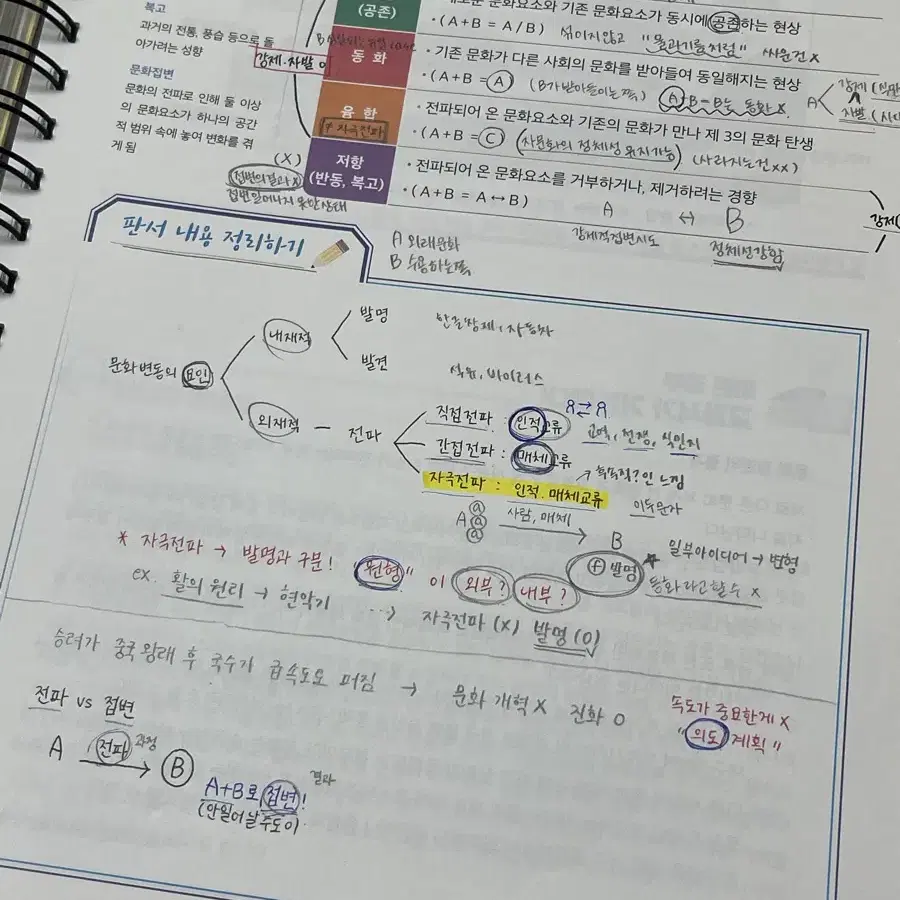 복고
과거의 전통, 풍습 등으로 돌
아가려는 성향
문화접변
문화의 전파로 인해 둘 이상
의 문화요소가 하나의 공간
적 범위 속에 놓여 변화를 겪
게 됨
(공존)
문화요소와 기존 문화요소가 동시에 공존하는 현상
· (A + B = A / B) 섞이지않고 "물과기름처럼" 싸운건X
강제·자발 O
동화
· 기존 문화가 다른 사회의 문화를 받아들여 동일해지는 현상
· (A + B = A) (B가 받아들이는쪽) A+B=B는 동화 X
A
강제
자발
융합
* 자극전파
· 전파되어 온 문화요소와 기존의 문화가 만나 제 3의 문화 탄생
· (A + B = C) (자문화의 정체성 유지가능) (사라지는건XX)
저항
(반동, 복고)
· 전파되어 온 문화요소를 거부하거나, 제거하려는 경향
· (A + B = A ↔ B)
A ↔ B
강제적접변시도 정체성강함
강제(
(X)
접변의결과X
접변일어나지 못한상태
판서 내용 정리하기
A 외래문화
B 수용하는쪽
문화변동의 요인
내재적
발명 한글창제, 자동차
발견 석유, 바이러스
외재적 — 전파
직접전파 : 인적교류 교역, 전쟁, 식민지
간접전파 : 매체교류
자극전파 : 인적, 매체교류 이두문자
A ⓐ ⓐ ⓐ 사람, 매체 → B
ⓕ 발명
* 일부아이디어 → 변형
동화라고할수 X
* 자극전파 → 발명과 구분! "원형" 이 외부? 내부?
ex. 활의 원리 → 현악기 ···> 자극전파 (X) 발명 (O)
승려가 중국 왕래 후 국수가 급속도로 퍼짐 → 문화 개혁 X 진화 O
속도가 중요한게 X
"의도 계획"
전파 vs 접변
A 전파 과정 → B
A+B로 접변! 결과
(안일어날수도이)